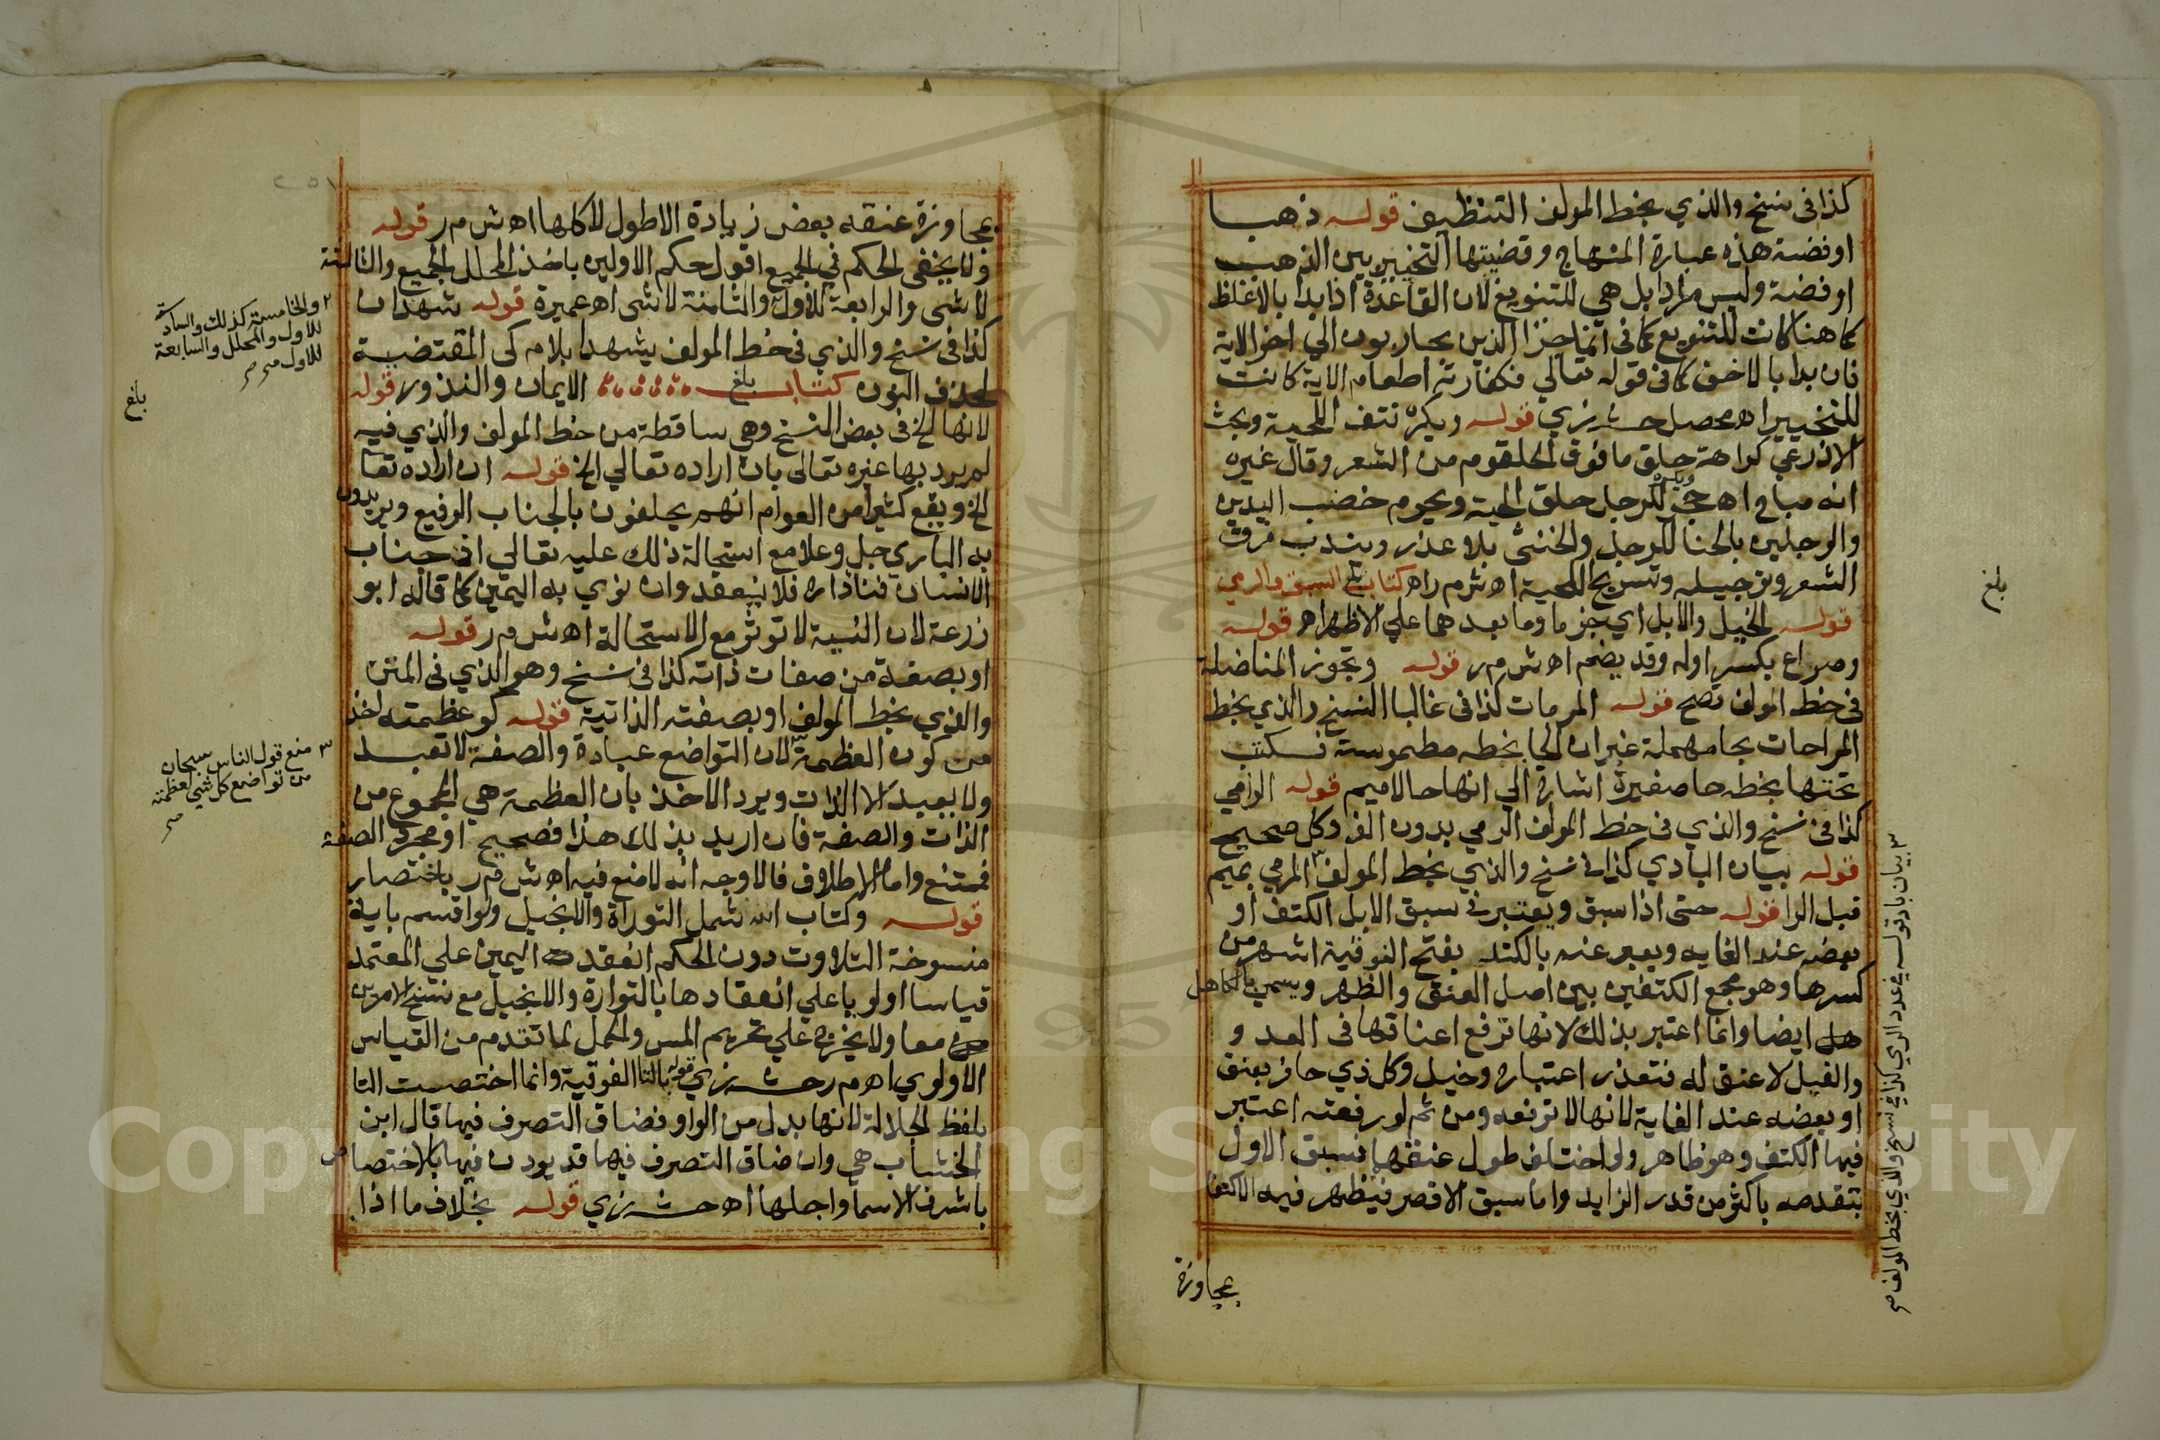 كذا فى نسخ والذي بخط المولف التنظيف قوله ذهبا
او فضة هذه عبارة المنهاج وقضيتها التخيير بين الذهب
او فضة وليس مرادا بل هي للتنويع لان القاعدة اذا بدا بالاغلظ
كما هنا كانت للتنويع كما فى انما جزا الذين يحاربون الي اخر الاية
فان بدا بالاخف كما فى قوله تعالي فكفارته اطعام الاية كانت
للتخيير اه محصل حـ زي قوله ويكره نتف اللحية وبحث
الاذرعي كراهة حلق ما فوق الحلقوم من الشعر وقال غيره
انه مباح اه حج ويكره للرجل حلق لحية ويحرم خضب اليدين
والرجلين بالحنا للرجل والخنثى بلا عذر ويندب فرق
الشعر وترجيله وتسريح اللحية اه ش م ر اه كتاب السبق والرمي
بلغ
قوله الخيل والابل اي جزما وما بعدهما علي الاظهر اه قوله
وصراع بكسر اوله وقد يضم اه ش م ر قوله وتجوز المناضلة
فى خط المولف تصح قوله المرمات كذا فى غالب النسخ والذي بخط
المراحات بحا مهملة غير ان الحا بخطه مطموسة فكتب
تحتها بخطه حا صغيرة اشارة الي انها حا لا ميم قوله الرامي
كذا فى نسخ والذي فى خط المولف الرمي بدون الف وكل صحيح
قوله بيان البادي كذا فى نسخ والذي بخط المولف المرمي بميم
قبل الرا قوله حتى اذا سبق ويعتبر فى سبق الابل الكتف او
بعضه عند الغايه ويعبر عنه بالكتد بفتح الفوقية اشهر من
كسرها وهو مجمع الكتفين بين اصل العنق والظهر ويسمى بالكاهل
ايضا وانما اعتبر بذلك لانها ترفع اعناقها فى العد و
والفيل لا عنق له فتعذر اعتباره وخيل وكل ذي حافر بعنق
او بعضه عند الغاية لانها لا ترفعه ومن ثم لو رفعته اعتبر
فيها الكتف وهو ظاهر ولو اختلف طول عنقها فسبق الاول
بتقدمه باكثر من قدر الزايد واما سبق الاقصر فيظهر فيه الاكتفا
بمجاوزة
بلغ
بيان بادقوله فى عدد الرمي كذا فى نسخ والذي بخط المولف صح
بمجاوزة عنقه بعض زيادة الاطول لا كلها اه ش م ر قوله
ولا يخفى الحكم في الجميع اقول حكم الاولين باخذ المحلل الجميع والثالثة
لا شى والرابعة للاول والثامنة لا شى اه عميرة قوله شهدان
كذا فى نسخ والذي فى خط المولف يشهدا بلام كى المقتضية
لحذف النون كتاب الايمان والنذور قوله
بلغ
لانها الخ فى بعض النسخ وهي ساقطة من خط المولف والذي فيه
لم يرد بها غيره تعالى بان اراده تعالي الخ قوله ان اراده تعا
الخ ويقع كثيرا من العوام انهم يحلفون بالجناب الرفيع ويريدون
به الباري جل وعلا مع استحالة ذلك عليه تعالي اذ جناب
الانسان فنا داره فلا ينعقد وان نوي به اليمين كما قاله ابو
زرعة لان النية لا توثر مع الاستحالة اه ش م ر قوله
او بصفة من صفات ذاته كذا فى نسخ وهو الذي فى المتن
والذي بخط المولف او بصفته الذاتية قوله كوعظمته اخذ
من كون العظمة لان التواضع عبادة والصفة لا تعبد
ولا يعبد الا الذات ويرد الاخذ بان العظمة هي المجموع من
الذات والصفة فان اريد بذلك هذا فصحيح او مجرد الصفة
فممتنع واما الاطلاق فالاوجه انه لا منع فيه اه ش م ر باختصار
قوله وكتاب الله شمل التوراة والانجيل ولو اقسم باية
منسوخة التلاوت دون الحكم انعقدت اليمين علي المعتمد
قياسا اولويا علي انعقادها بالتوارة والانجيل مع نسخ الامرين
معا ولا يخرج علي تحريم المس والحمل لما تقدم من القياس
الاولوي اه م ر حـ زي قوله بالتا الفوقية وانما اختصت التا
بلفظ الجلالة لانها بدل من الواو فضاق التصرف فيها قال ابن
الخشاب هي وان ضاق التصرف فيها قد بورك فيها بالاختصاص
باشرف الاسما واجلها اه حـ زي قوله بخلاف ما اذا
والخامسة كذلك والسادسة
للاول والمحلل والسابعة
للاول صح
بلغ
منع قول الناس سبحان
من تواضع كل شي لعظمته
صح
Copyright © King Saud University
1957